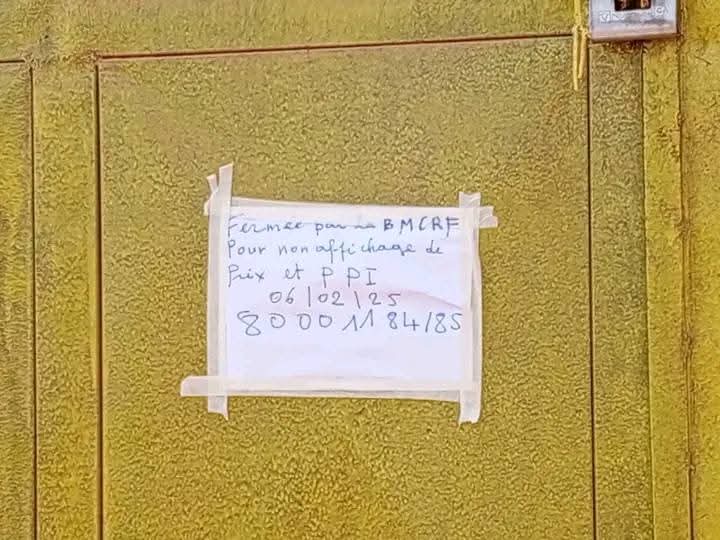 Fermée par la BMCRF
Pour non affichage de
Prix et PPI
06/02/25
80001184/85